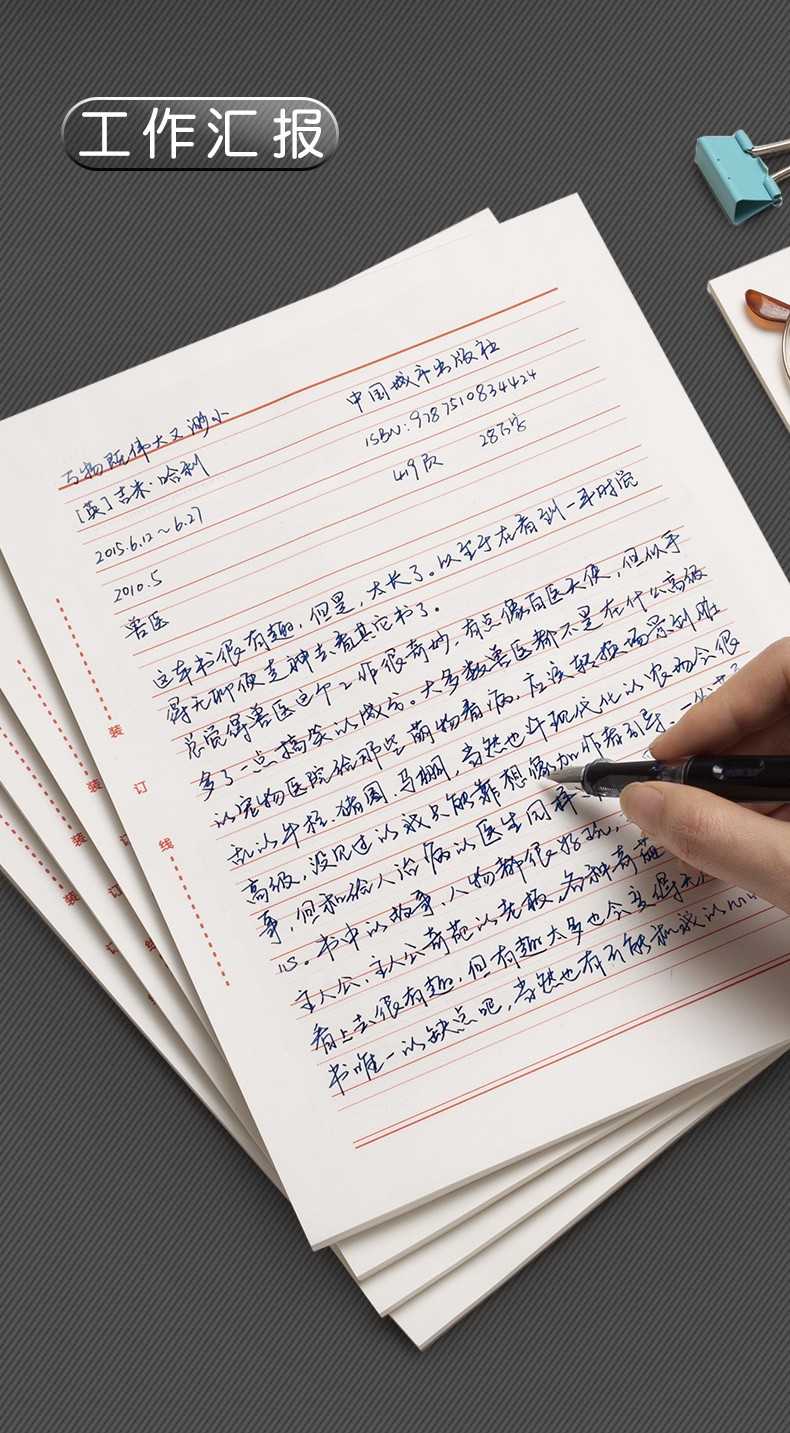 工作汇报
万物既伟大又渺小
中国城市出版社
[英]吉米·哈利
ISBN:9787510834424
2015.6.12~6.27
419页 28万字
2010.5
兽医
这本书很有趣,但是,太长了。以至于在看到一半时觉
得无聊便走神去看其它书了。
总觉得兽医这个工作很奇妙,有点像白医天使,但似乎
多了一点搞笑的成分。大多数兽医都不是在什么高级
的宠物医院给那些萌物看病,应该转换场景到脏
乱的牛栏、猪圈、马棚,当然也许现代化的农场会很
高级,没见过的我只能靠想像加作者引导。一
事,但和给人治病的医生同样
心。书中的故事、人物都很好玩,
主人公,主人公奇葩的老板,各种奇葩
看上去很有趣,但有趣太多也会变得无
书唯一的缺点吧,当然也有可能和我的
装
订
线
装
订
线
装
订